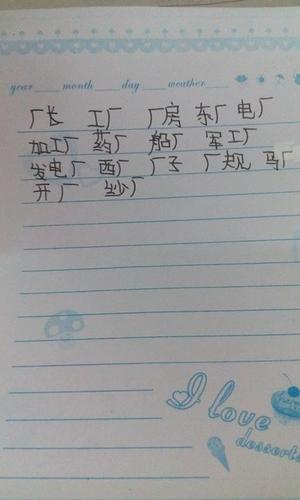 year month day weather
厂长 工厂 厂房 东厂 电厂
加工厂 药厂 船厂 军工厂
发电厂 西厂 厂子 厂规 马厂
开厂 纱厂
I love
desserts